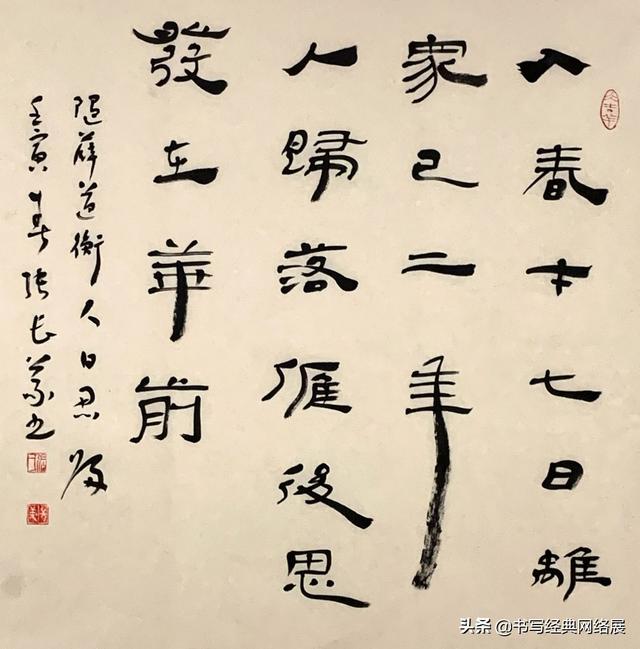 入春才七日離
家已二年
人歸落雁後思
發在華前
隨薛道衡人日思歸
壬寅春張長義書
头条 @书写经典网络展